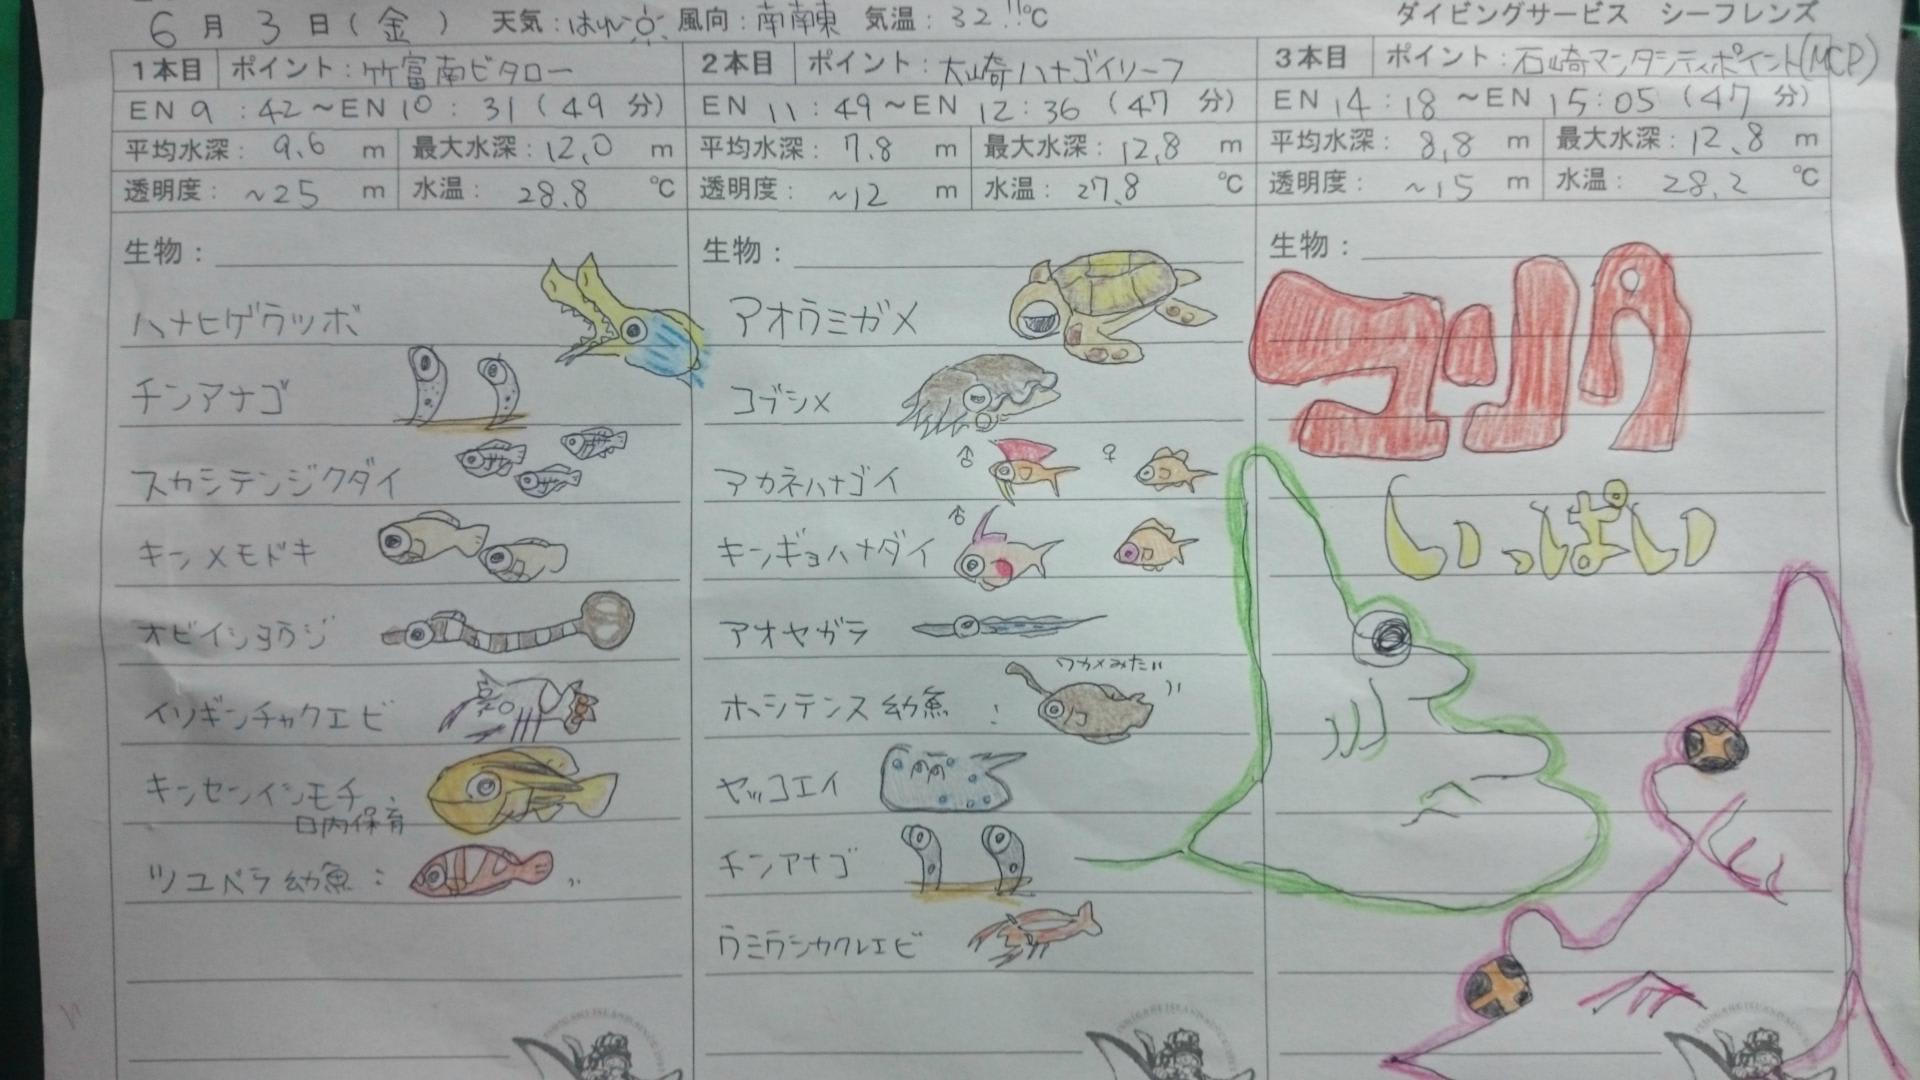 6月3日(金) 天気：はれ 風向：南南東 気温：32!!℃
ダイビングサービス シーフレンズ
1本目 ポイント：竹富南ビタロー
EN 9:42～EN 10:31(49分)
平均水深：9.6m 最大水深：12.0m
透明度：~25m 水温：28.8℃
生物：
ハナヒゲウツボ
チンアナゴ
スカシテンジクダイ
キンメモドキ
オビイシヨウジ
イソギンチャクエビ
キンセンイシモチ
口内保育
ツユベラ幼魚：
2本目 ポイント：大崎ハナゴイリーフ
EN 11:49～EN 12:36(47分)
平均水深：7.8m 最大水深：12.8m
透明度：~12m 水温：27.8℃
生物：
アオウミガメ
コブシメ
アカネハナゴイ ♂ ♀
キンギョハナダイ ♂
アオヤガラ
ワカメみたい
ホシテンス幼魚：
ヤッコエイ
チンアナゴ
ウミウシカクレエビ
3本目 ポイント：石崎マンタシティポイント(MCP)
EN 14:18～EN 15:05(47分)
平均水深：8.8m 最大水深：12.8m
透明度：~15m 水温：28.2℃
生物：
いっぱい